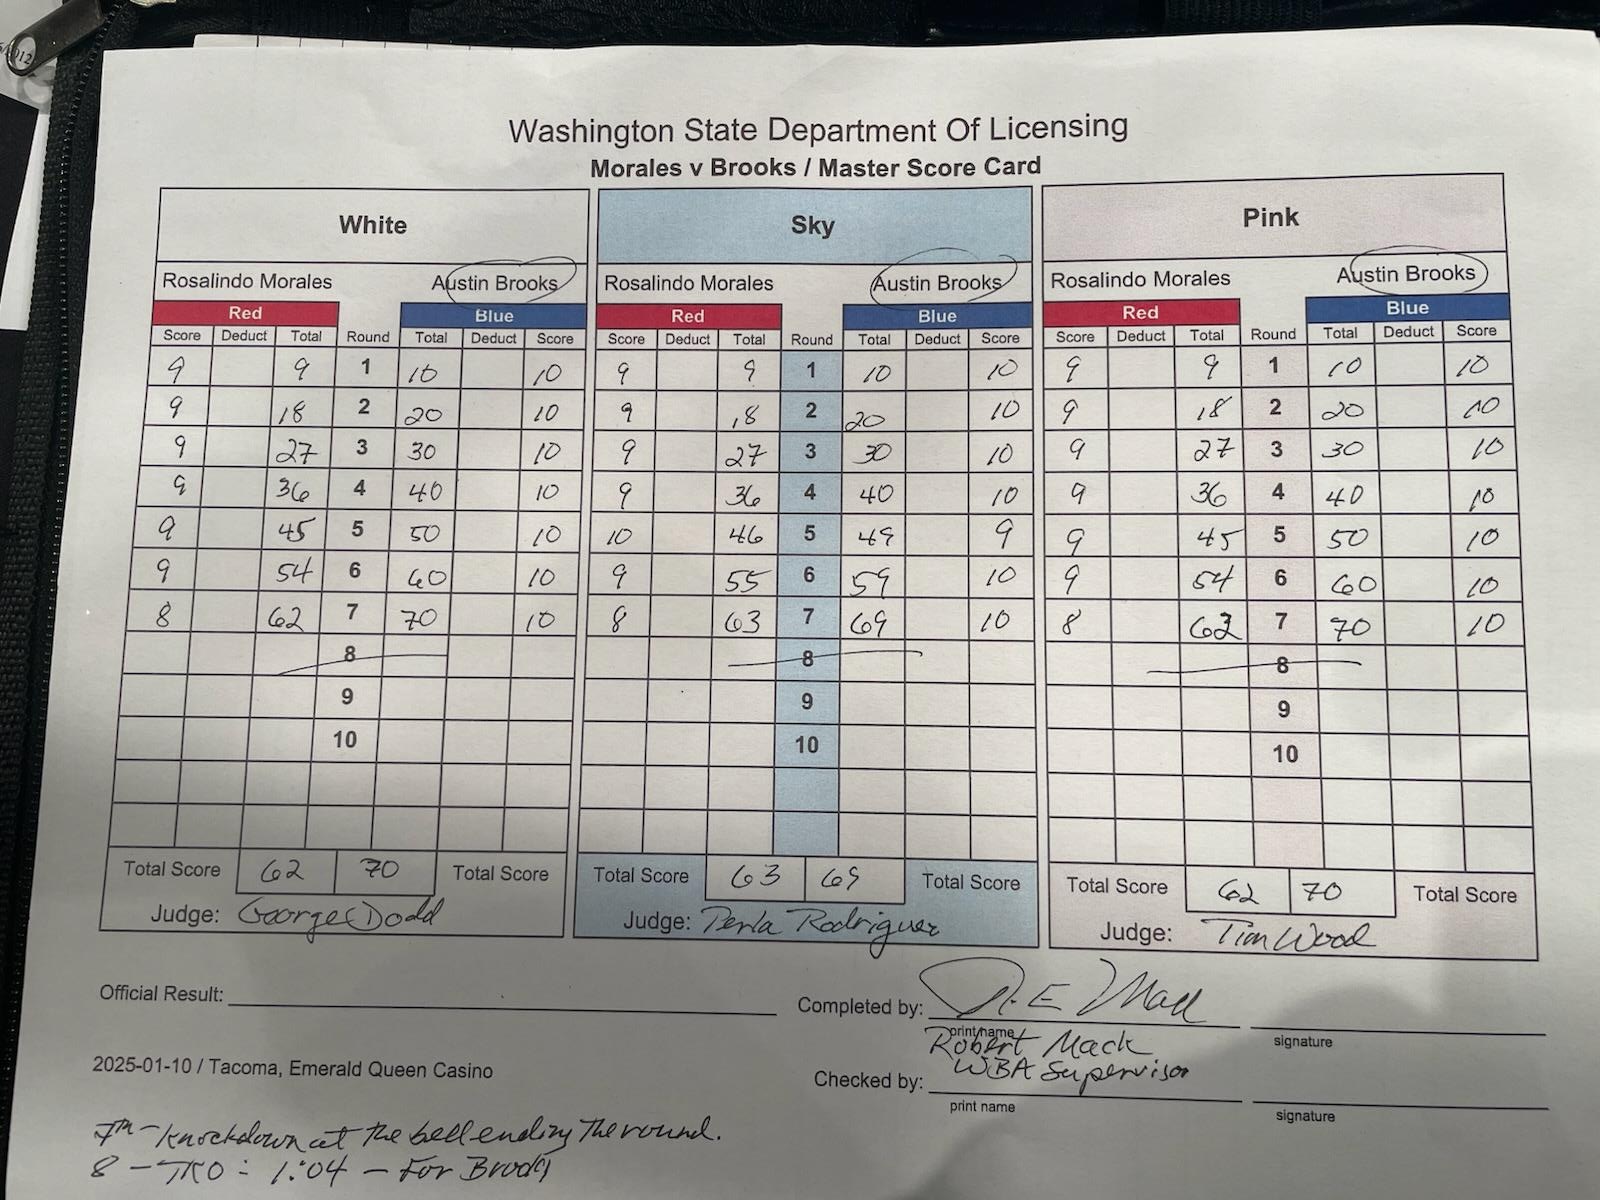 Washington State Department Of Licensing
Morales v Brooks / Master Score Card
White Sky Pink
Rosalindo Morales Austin Brooks Rosalindo Morales Austin Brooks Rosalindo Morales Austin Brooks
Red Blue Red Blue Red Blue
Score Deduct Total Round Total Deduct Score Score Deduct Total Round Total Deduct Score Score Deduct Total Round Total Deduct Score
9 9 1 10 10 9 9 1 10 10 9 9 1 10 10
9 18 2 20 10 9 18 2 20 10 9 18 2 20 10
9 27 3 30 10 9 27 3 30 10 9 27 3 30 10
9 36 4 40 10 9 36 4 40 10 9 36 4 40 10
9 45 5 50 10 10 46 5 49 9 9 45 5 50 10
9 54 6 60 10 9 55 6 59 10 9 54 6 60 10
8 62 7 70 10 8 63 7 69 10 8 62 7 70 10
8 8 8
9 9 9
10 10 10
Total Score 62 70 Total Score Total Score 63 69 Total Score Total Score 62 70 Total Score
Judge: George Dodd Judge: Perla Rodriguez Judge: Tim Wood
Official Result: Completed by: R.E Mack
print name signature
Robert Mack
WBA Supervisor
2025-01-10 / Tacoma, Emerald Queen Casino Checked by:
print name signature
7th - Knockdown at the bell ending the round.
8 - TKO - 1:04 - For Brooks